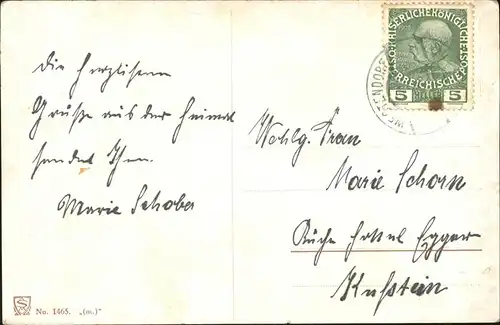 die herzlichen
Grüße aus der Heimat
sendet Ihnen
Marie Schober
Wohlg. Frau
Marie Schorn
Küche Hotel Egger
Kufstein
KAISERLICHE KÖNIGLICHE
ÖSTERREICHISCHE POST
5 HELLER 5
No. 1465. „(m.)"